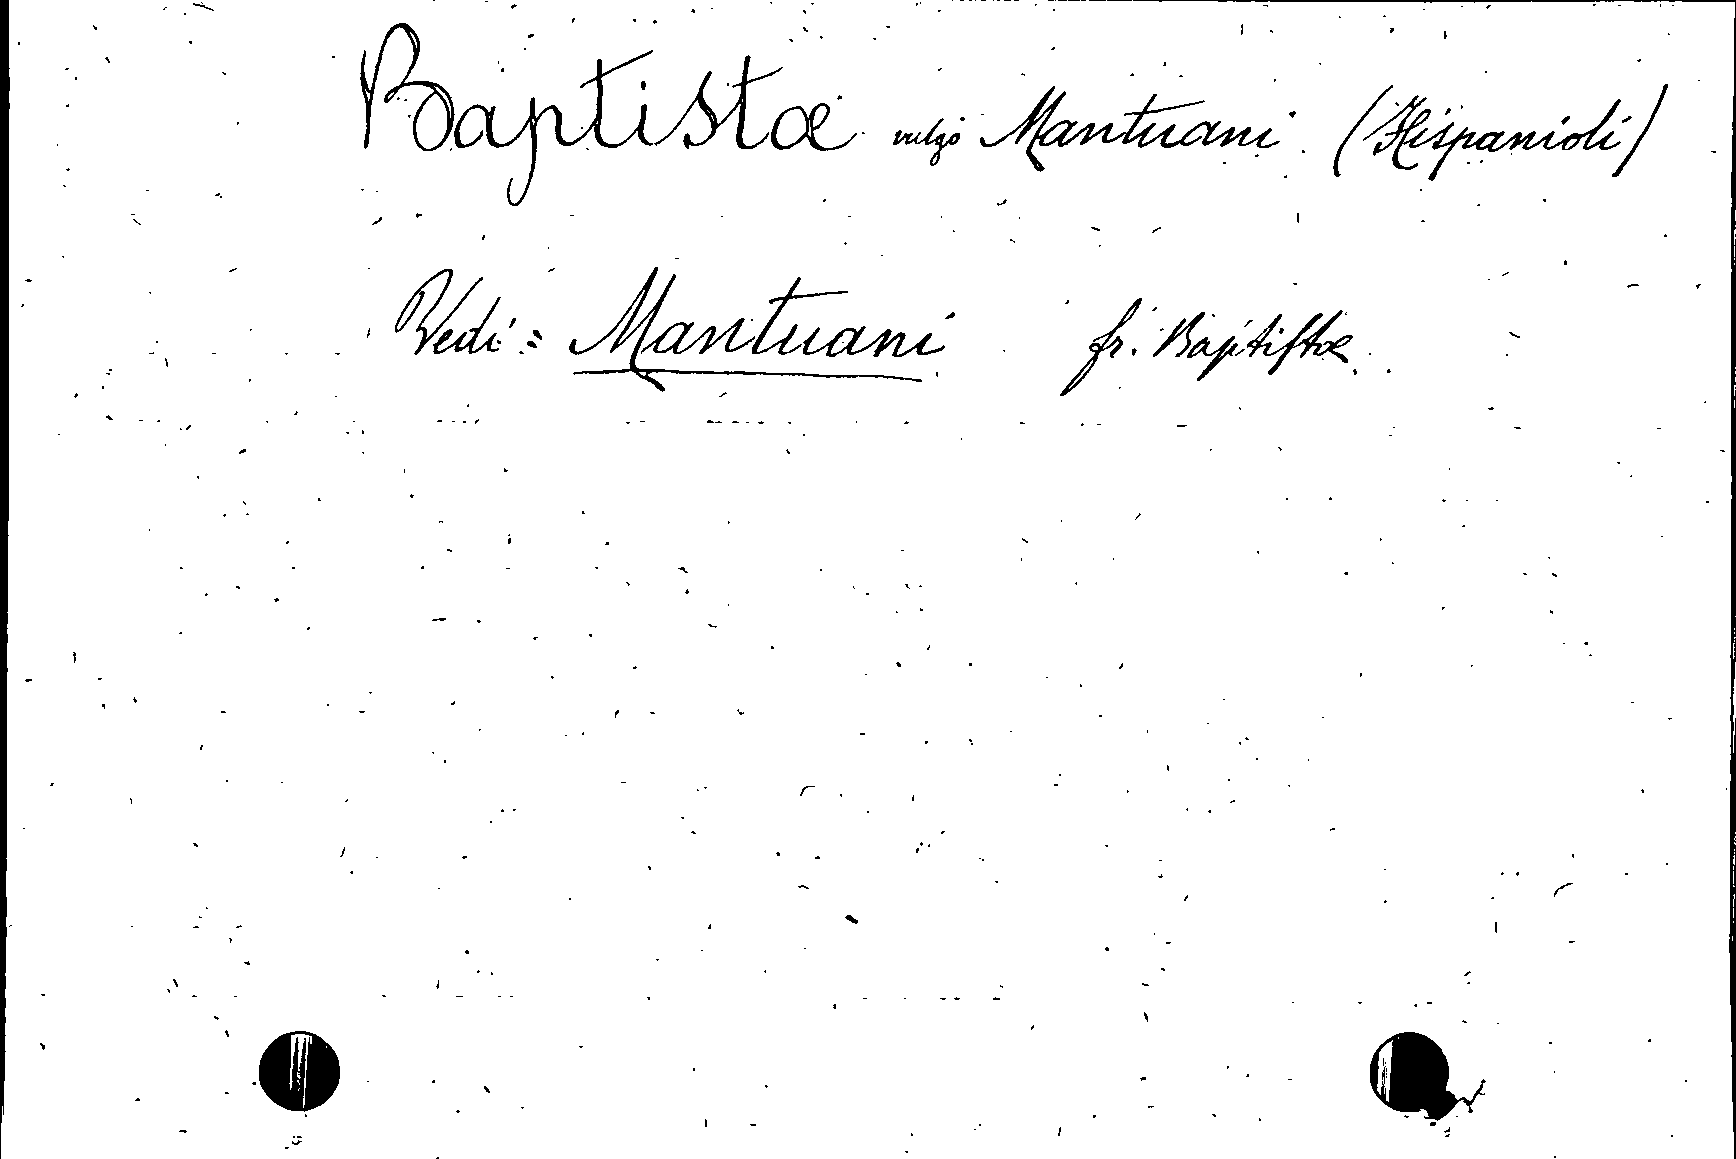 Baptistæ vulgo Mantuani (Hispanioli)
Vedi: Mantuani fr. Baptistæ